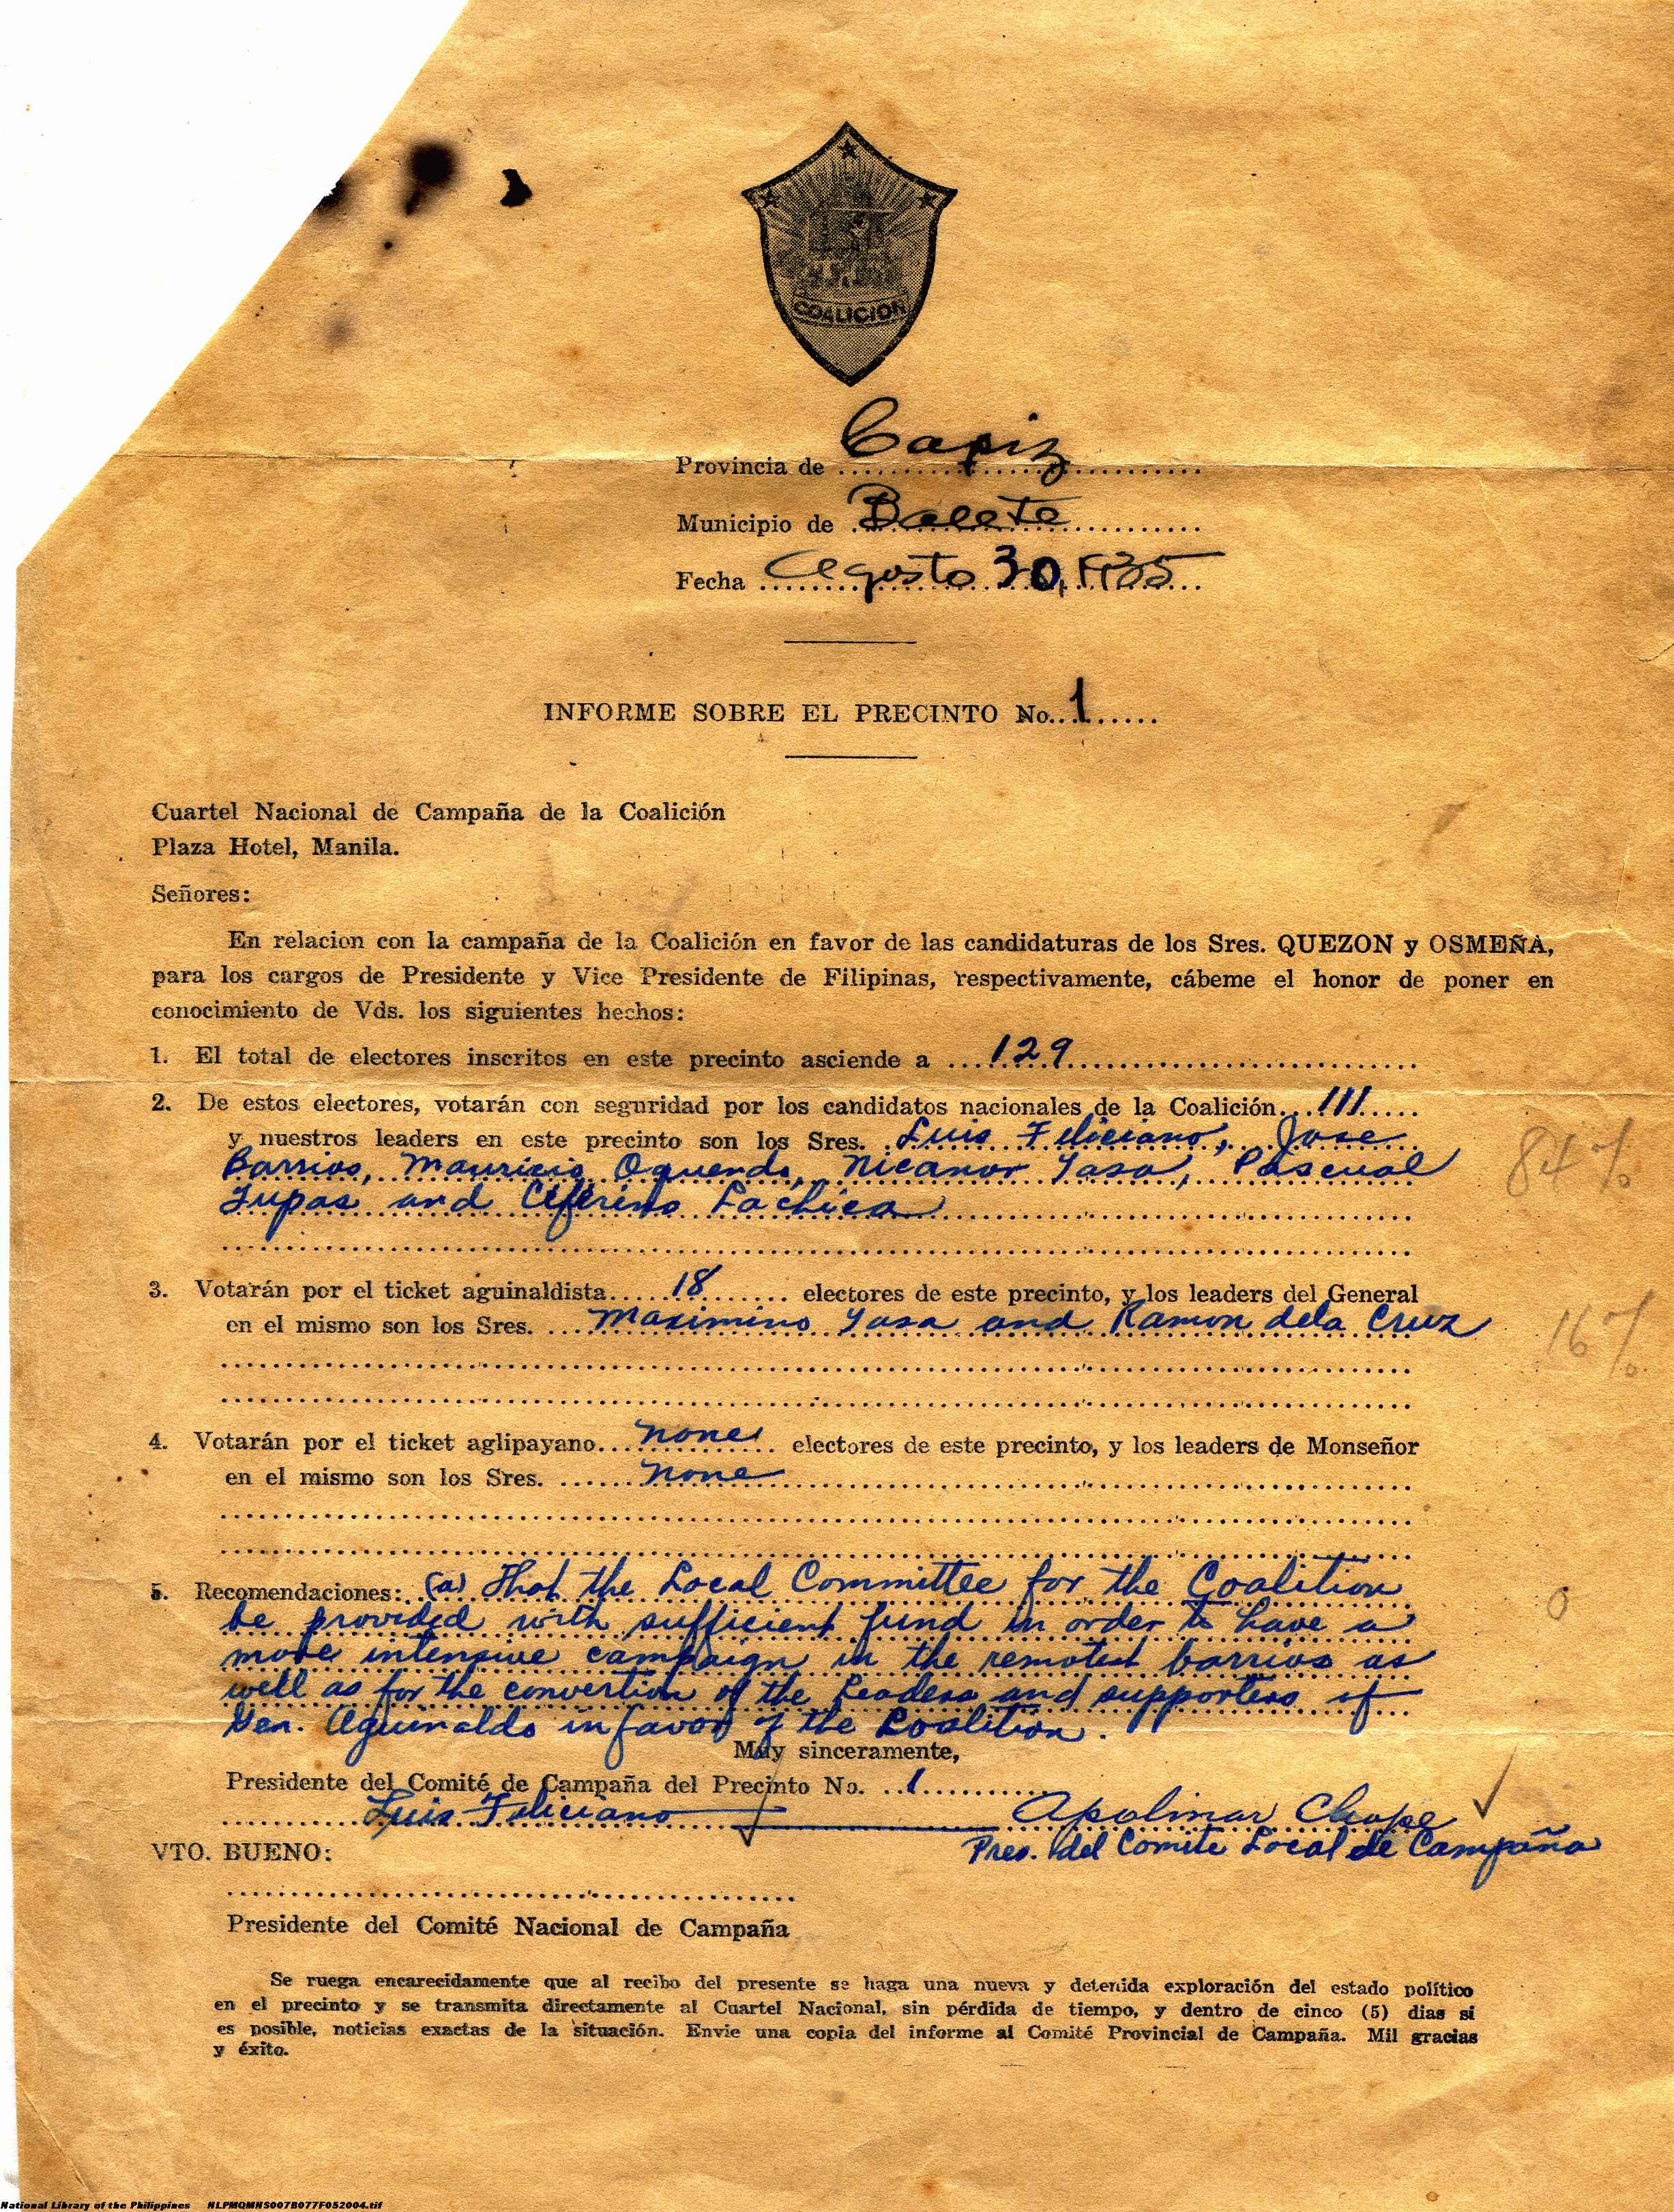 COALICION
Provincia de Capiz
Municipio de Balete
Fecha Agosto 30, 1935
INFORME SOBRE EL PRECINTO No. 1
Cuartel Nacional de Campaña de la Coalición
Plaza Hotel, Manila.
Señores:
En relacion con la campaña de la Coalición en favor de las candidaturas de los Sres. QUEZON y OSMEÑA,
para los cargos de Presidente y Vice Presidente de Filipinas, respectivamente, cábeme el honor de poner en
conocimiento de Vds. los siguientes hechos:
1. El total de electores inscritos en este precinto asciende a 129
2. De estos electores, votarán con seguridad por los candidatos nacionales de la Coalición 111
y nuestros leaders en este precinto son los Sres. Luis Feliciano, Jose
Barrios, Mauricio Oquendo, Nicanor Yasa, Pascual
84%
Tupas and Ceferino Lachica
3. Votarán por el ticket aguinaldista 18 electores de este precinto, y los leaders del General
en el mismo son los Sres. Maximino Yasa and Ramon dela Cruz
16%
4. Votarán por el ticket aglipayano none electores de este precinto, y los leaders de Monseñor
en el mismo son los Sres. none
5. Recomendaciones: (a) That the Local Committee for the Coalition
0
be provided with sufficient fund in order to have a
more intensive campaign in the remotest barrios as
well as for the convertion of the Leaders and supporters of
Gen. Aguinaldo in favor of the Coalition.
Muy sinceramente,
Presidente del Comité de Campaña del Precinto No. 1
Luis Feliciano Apolinar
Pres. del Comite Local de Campaña
VTO. BUENO:
Presidente del Comité Nacional de Campaña
Se ruega encarecidamente que al recibo del presente se haga una nueva y detenida exploración del estado político
en el precinto y se transmita directamente al Cuartel Nacional, sin pérdida de tiempo, y dentro de cinco (5) dias si
es posible, noticias exactas de la situación. Envie una copia del informe al Comité Provincial de Campaña. Mil gracias
y éxito.
National Library of the Philippines NLPMQMNS007B077F052004.tif